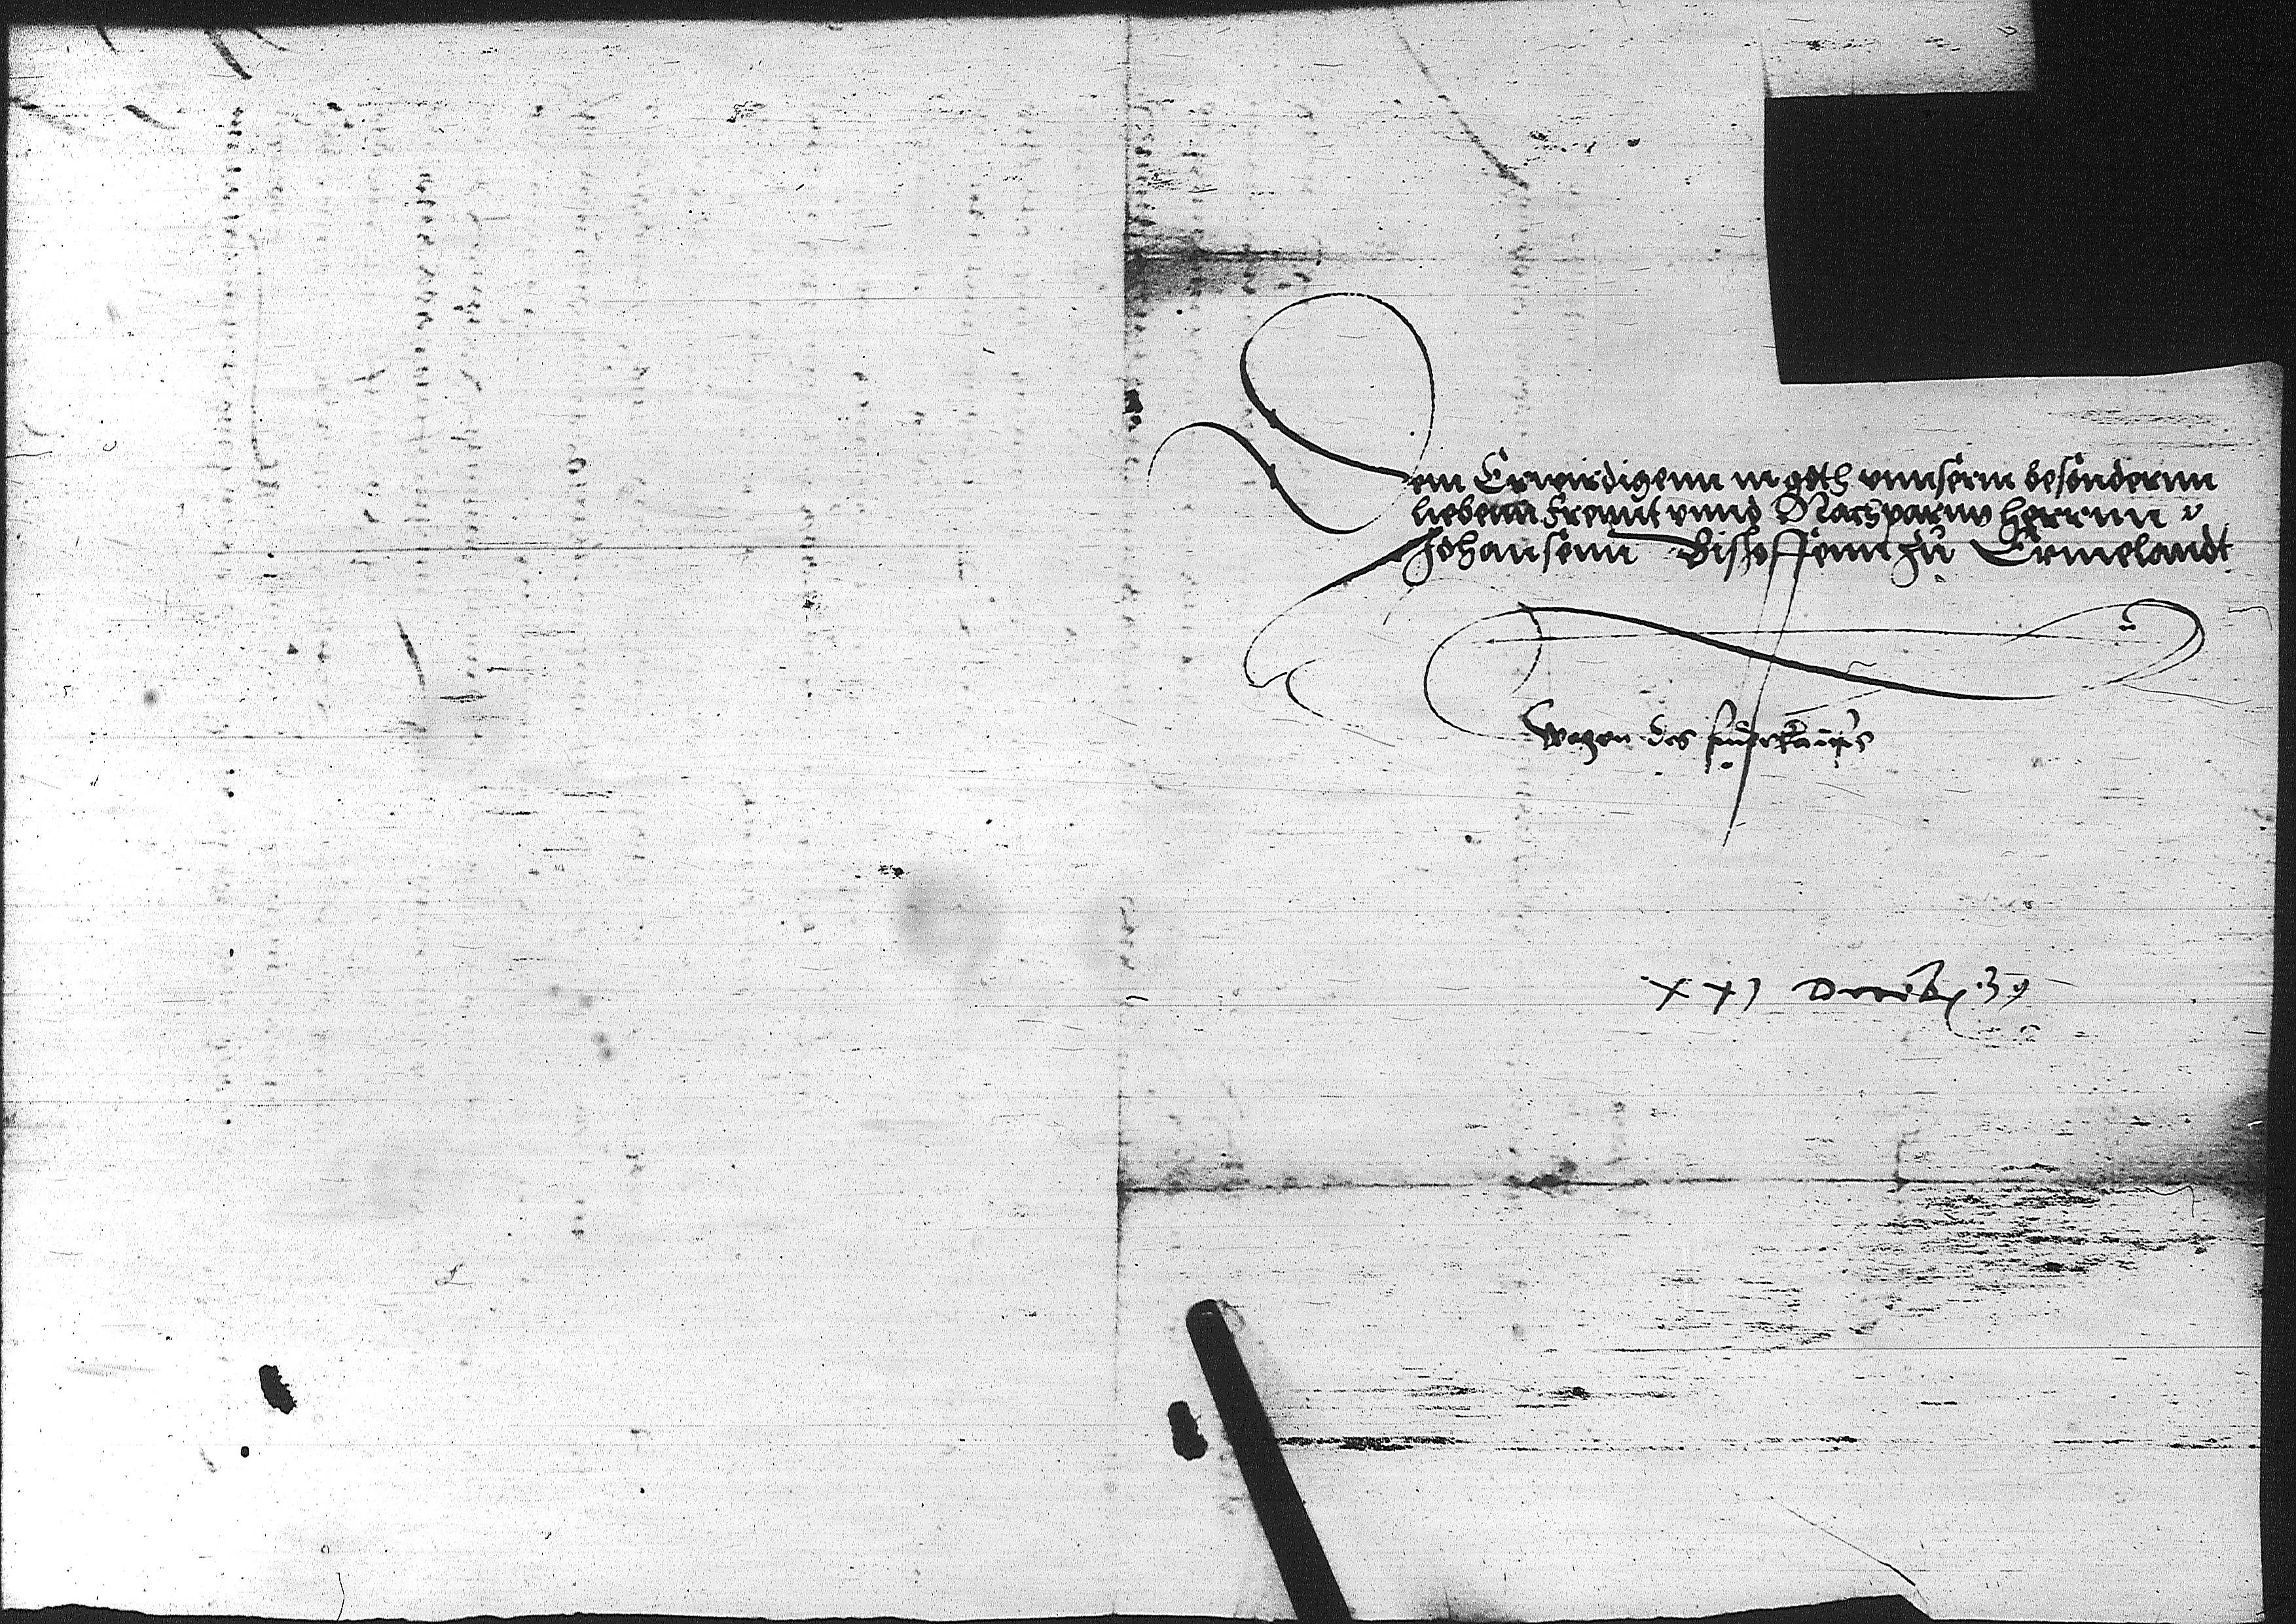 Dem Erwirdigenn in goth vnnserm besondernn
liebenn Freunt vnnd Nachparnn herrnn
Johansenn Bischoffenn zu Ermelandt
Wegen des
XXI Decēb 39